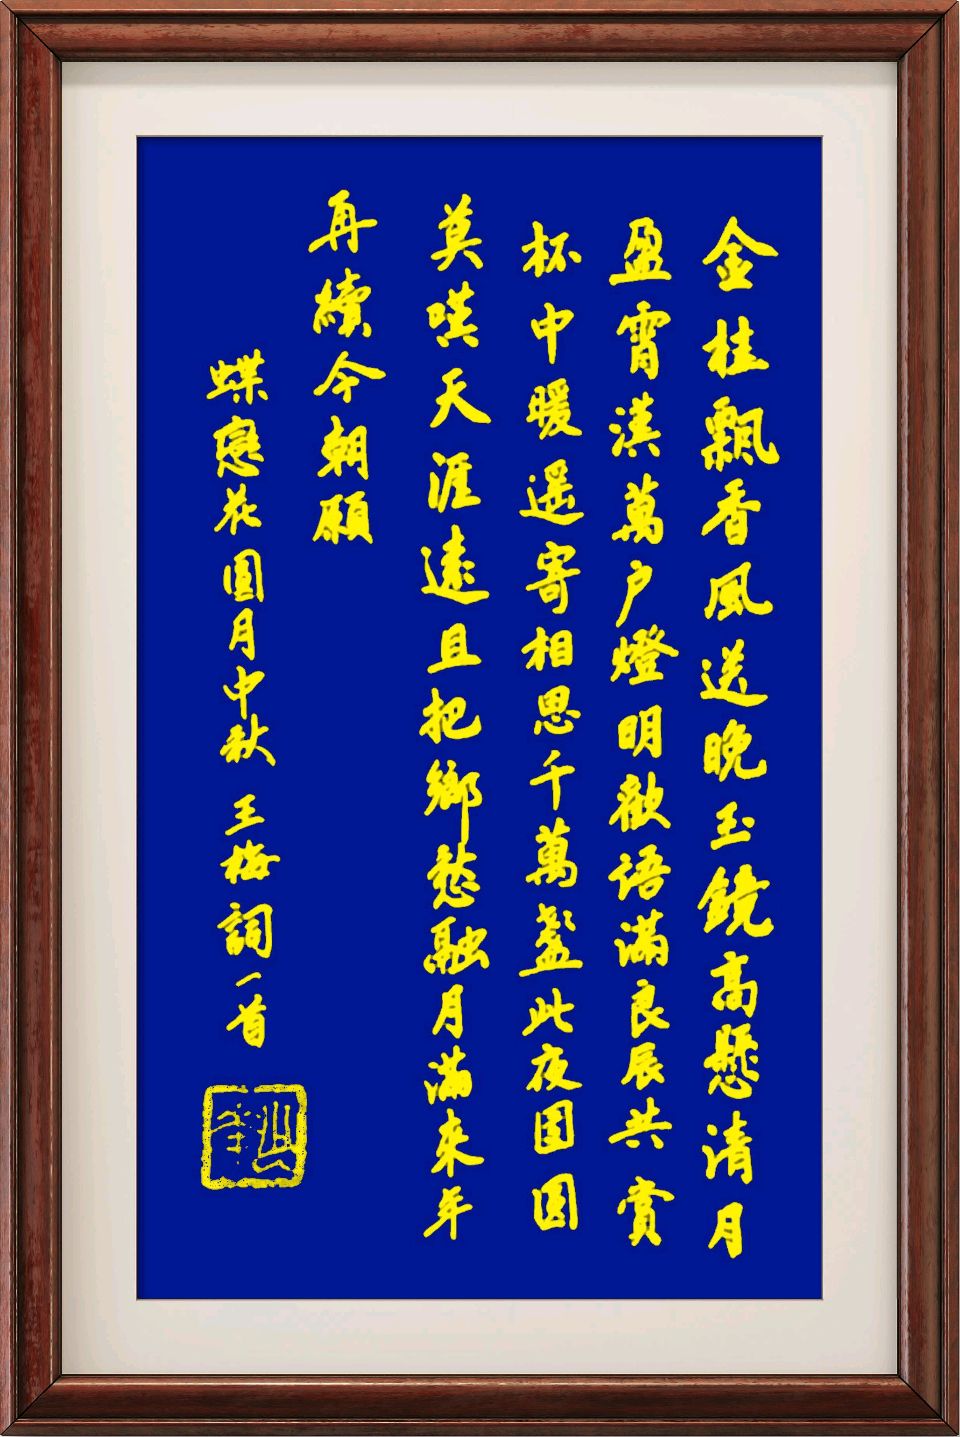 金桂飄香風送晚玉鏡高懸清月
盈霄漢萬户燈明歡語滿良辰共賞
杯中暖遥寄相思千萬盞此夜團圓
莫嘆天涯遠且把鄉愁融月滿來年
再續今朝願
蝶戀花圓月中秋 王梅詞一首